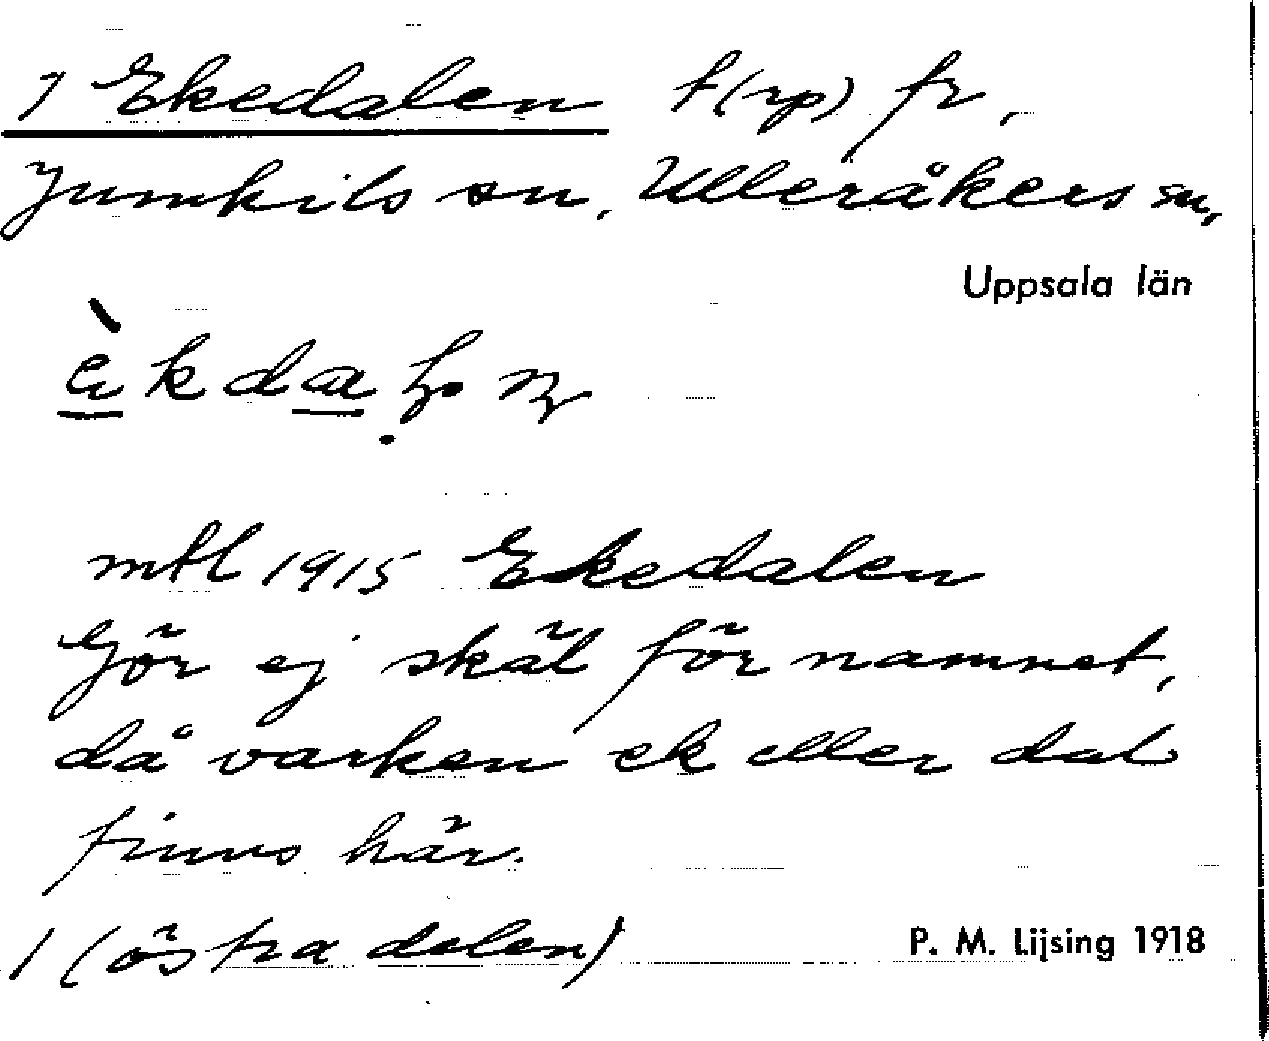 1 Ekedalen t(rp) fr,
Jumkils sn, Ulleråkers sn,
Uppsala län
mtl 1915 Ekedalen
Gör ej skäl för namnet,
då varken ek eller dal
finns här.
1 (östra delen)
P. M. Lijsing 1918